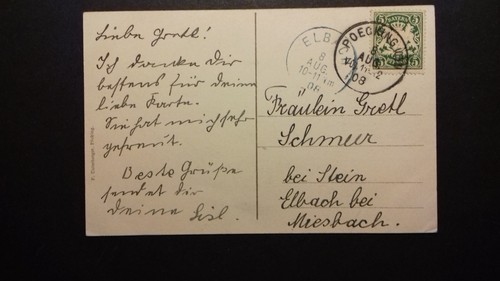 Liebe Gretl!
Ich danke dir
bestens für deine
liebe Karte.
Sie hat mich sehr
gefreut.
Beste Grüße
sendet dir
deine Lisl.
ELBACH
8
AUG.
10-11
08
POECKING
8
AUG
08
5
5
BAYERN
Fräulein Gretl
Schmeer
bei Stein
Elbach bei
Miesbach.